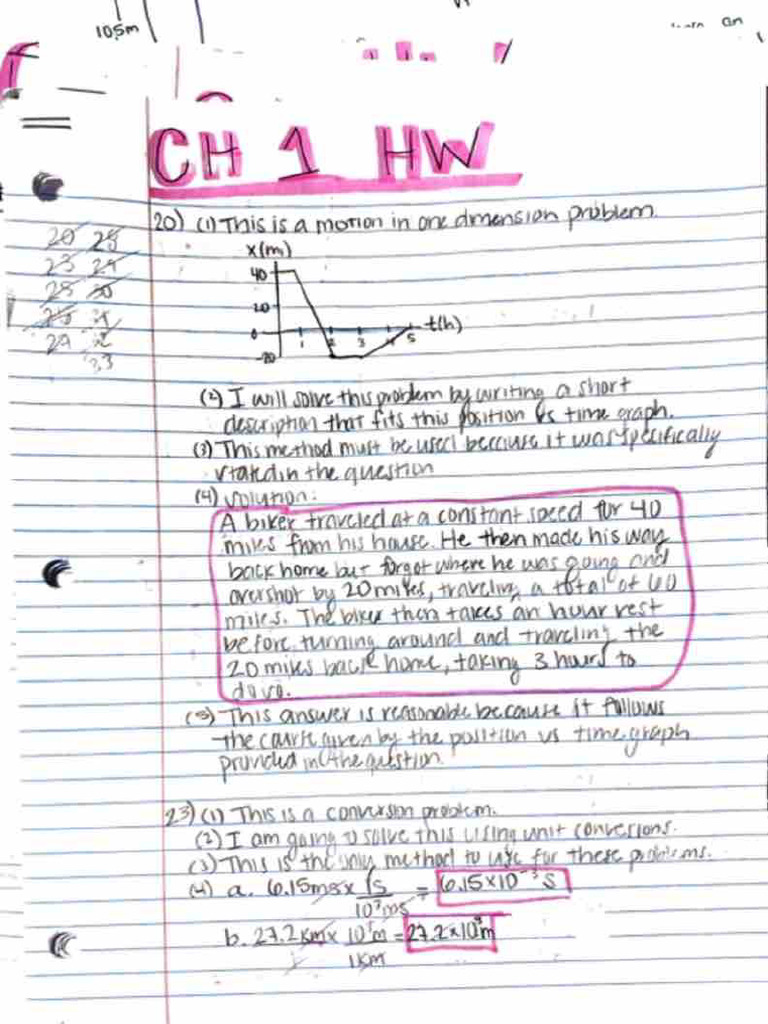 10.5m
an
CH 1 HW
20 28
23 29
25 30
26 31
27 32
33
20) (1) This is a motion in one dmension problem.
x(m)
40
20
0
-20
1 2 3 4 5
t(h)
(2) I will solve this problem by writing a short
description that fits this position vs time graph.
(3) This method must be used because it was specifically
stated in the question
(4) Solution:
A biker traveled at a constant speed for 40
miles from his house. He then made his way
back home but forgot where he was going and
overshot by 20 miles, traveling a total of 60
miles. The biker then takes an hour rest
before turning around and traveling the
20 miles back home, taking 3 hours to
do so.
(5) This answer is reasonable because it follows
the course given by the position vs time graph
provided in the question.
23) (1) This is a conversion problem.
(2) I am going to solve this using unit conversions.
(3) This is the only method to use for these problems.
(4) a. 6.15ms x 1s / 10³ms = 6.15x10⁻³ s
b. 27.2km x 10³m / 1km = 27.2x10³m